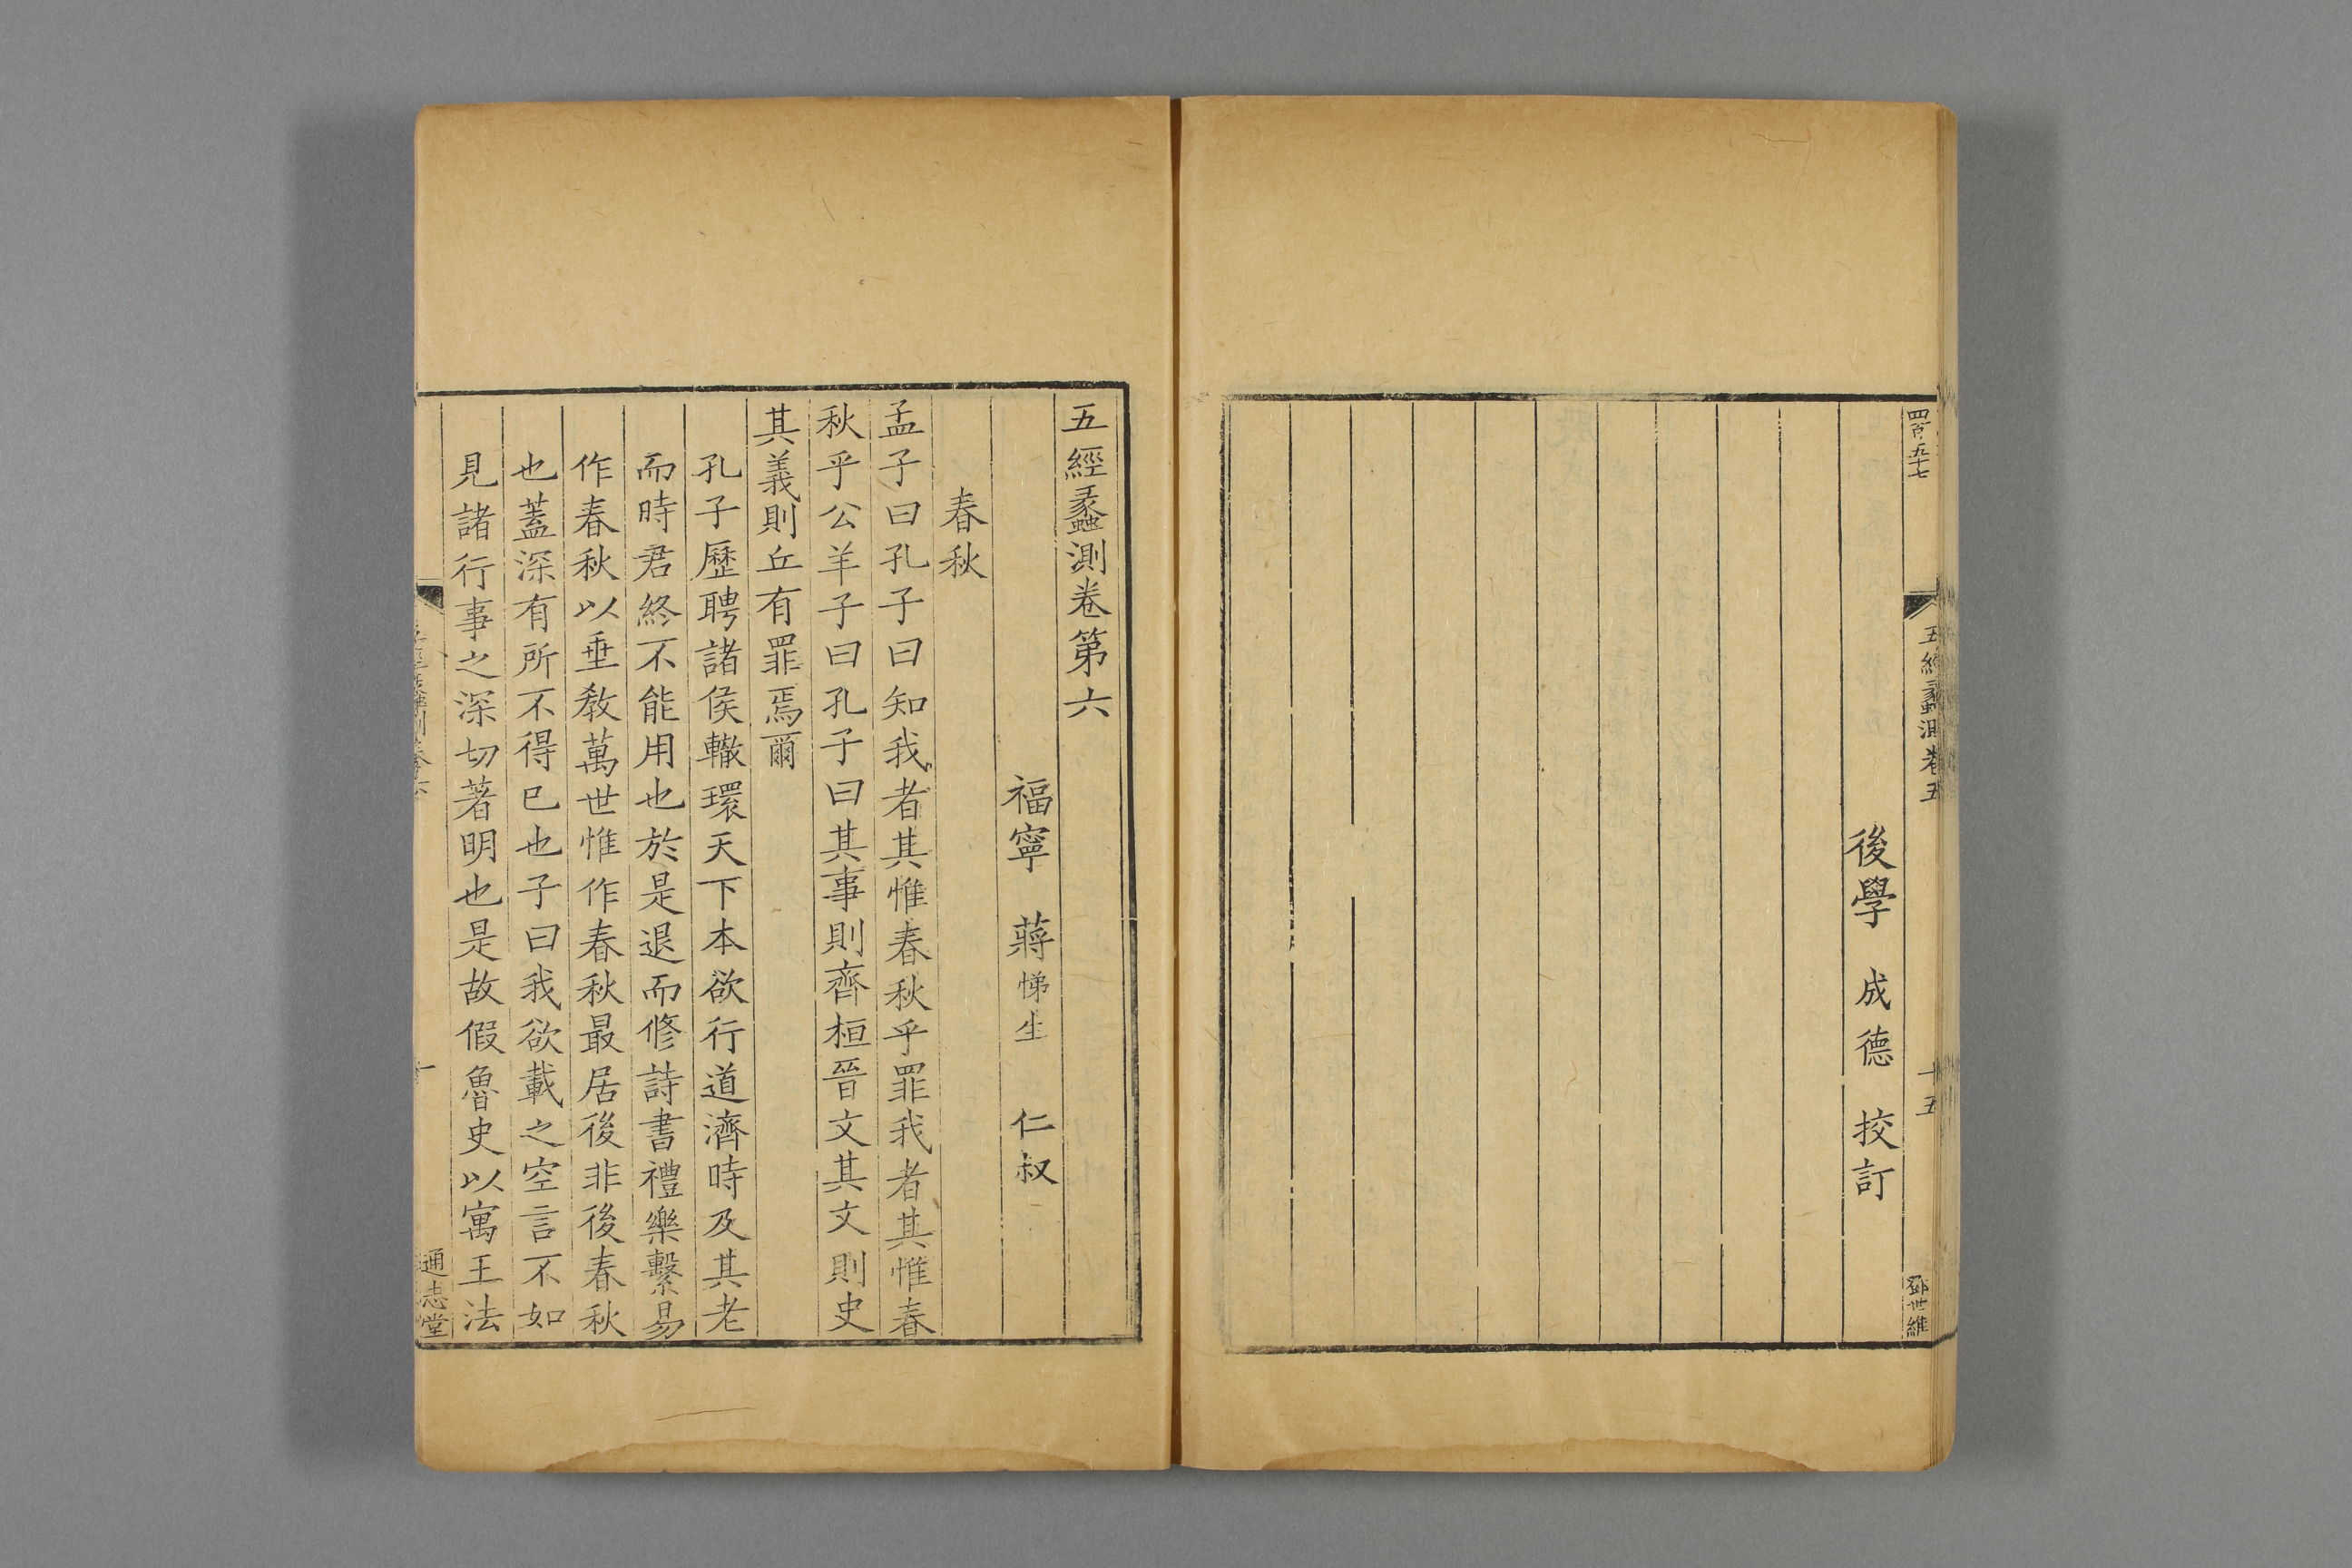 四百五十七
五經蠡測卷五
十五
鄧世維
後學 成德 挍訂
五經蠡測卷第六
福寧 蔣悌生 仁叔
春秋
孟子曰孔子曰知我者其惟春秋乎罪我者其惟春
秋乎公羊子曰孔子曰其事則齊桓晉文其文則史
其義則丘有罪焉爾
孔子歷聘諸侯轍環天下本欲行道濟時及其老
而時君終不能用也於是退而修詩書禮樂繫易
作春秋以垂敎萬世惟作春秋最居後非後春秋
也蓋深有所不得巳也子曰我欲載之空言不如
見諸行事之深切著明也是故假魯史以寓王法
五經蠡測卷六
一
通志堂